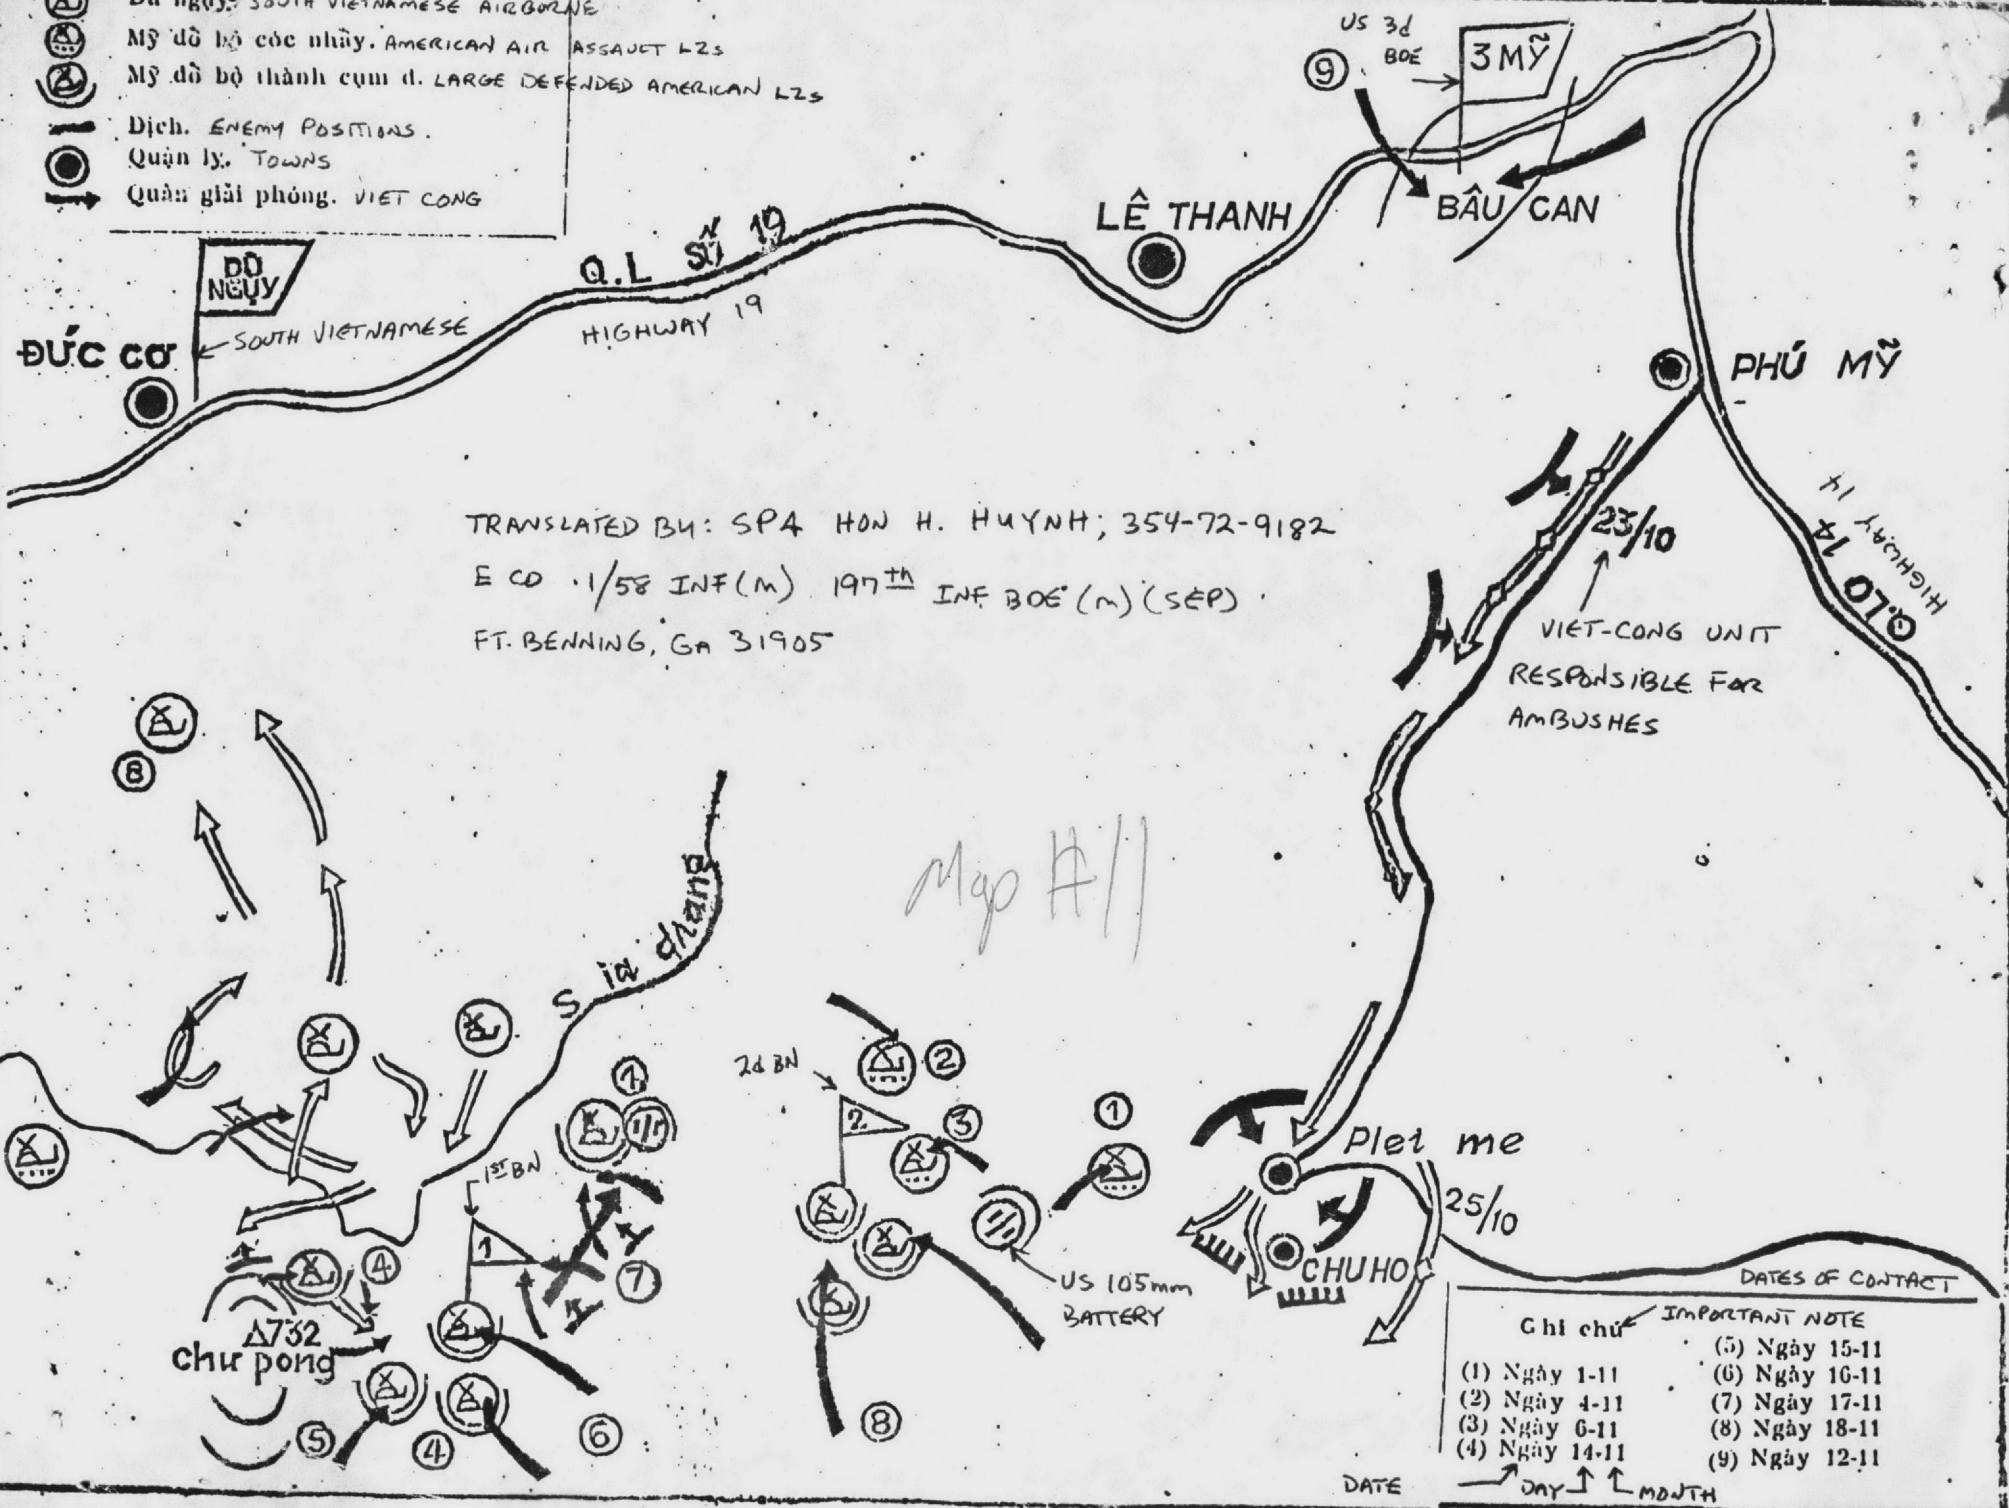 SOUTH VIETNAMESE AIRBORNE
Mỹ đổ bộ cóc nhảy. AMERICAN AIR ASSAULT LZs
Mỹ đổ bộ thành cụm d. LARGE DEFENDED AMERICAN LZs
Dịch. ENEMY POSITIONS.
Quận lỵ. TOWNS
Quân giải phóng. VIET CONG
US 3d
BDE
9
3 MỸ
BÂU CAN
LÊ THANH
Q.L SỐ 19
HIGHWAY 19
DÙ
NGỤY
SOUTH VIETNAMESE
ĐỨC CƠ
PHÚ MỸ
HIGHWAY 14
Q.LO 14
23/10
VIET-CONG UNIT
RESPONSIBLE FOR
AMBUSHES
TRANSLATED BY: SP4 HON H. HUYNH; 354-72-9182
E CO 1/58 INF(M) 197th INF BDE (M)(SEP)
FT. BENNING, GA 31905
8
Map #11
S ia drang
2d BN
2
2
3
1
1
1ST BN
1
7
Plei me
25/10
CHUHO
US 105mm
BATTERY
4
△732
chư pong
5
4
6
8
DATES OF CONTACT
Ghi chú IMPORTANT NOTE
(1) Ngày 1-11
(2) Ngày 4-11
(3) Ngày 6-11
(4) Ngày 14-11
(5) Ngày 15-11
(6) Ngày 16-11
(7) Ngày 17-11
(8) Ngày 18-11
(9) Ngày 12-11
DATE DAY MONTH